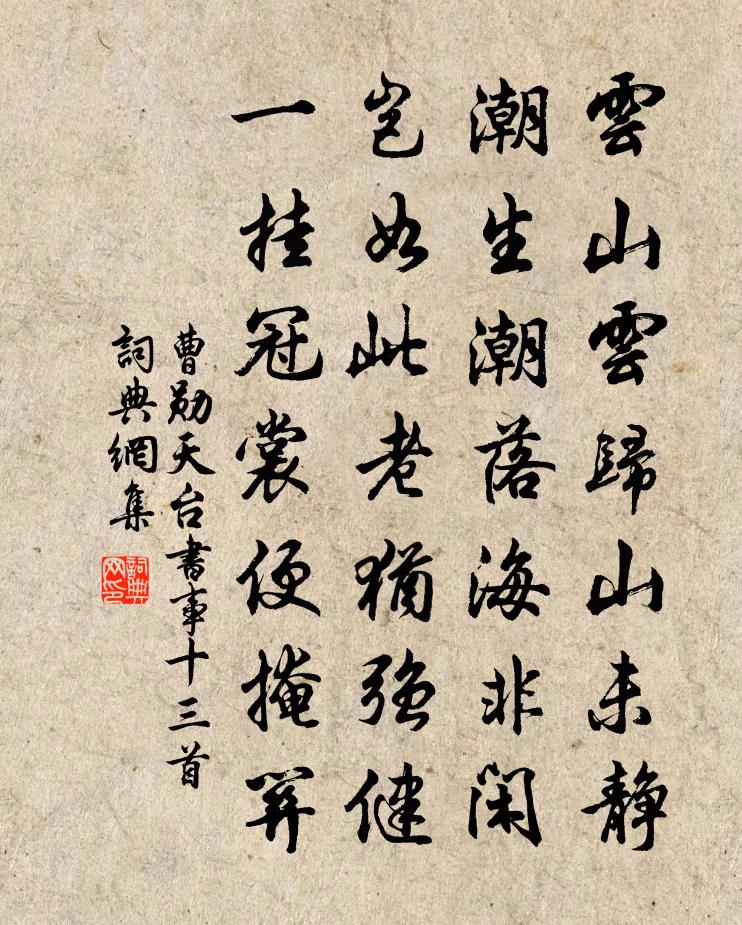 雲山雲歸山未静
潮生潮落海非閑
豈如此老猶強健
一挂冠裳便掩關
曹勛天台書事十三首
詞典網集
詞典网印